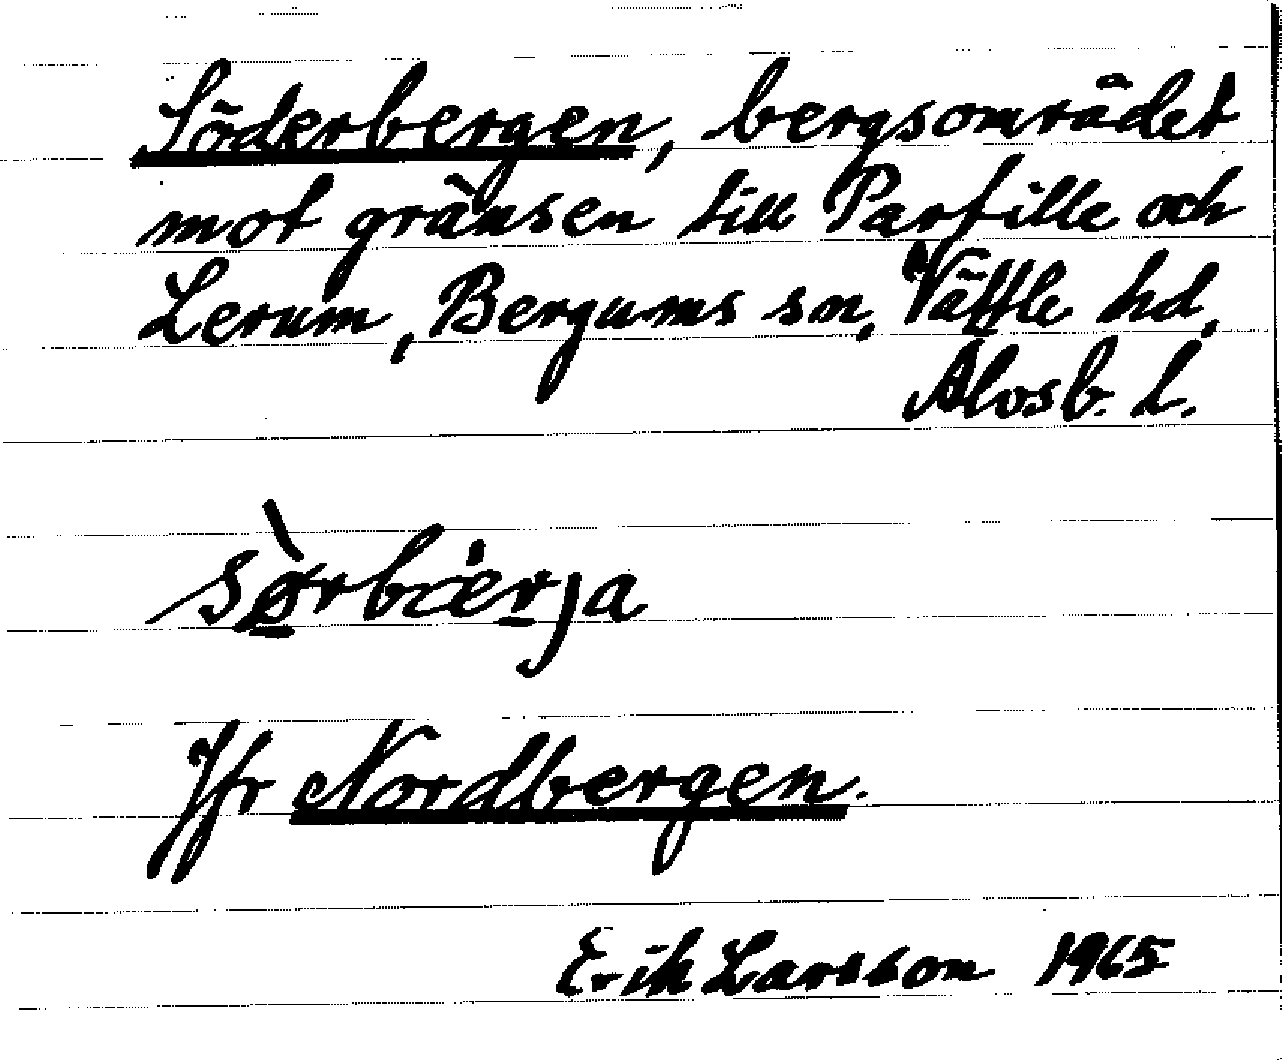 Söderbergen, bergsområdet
mot gränsen till Partille och
Lerum, Bergums sn, Vättle hd,
Älvsb. l.
sø̀rbærja
Jfr Nordbergen.
Erik Larsson 1965